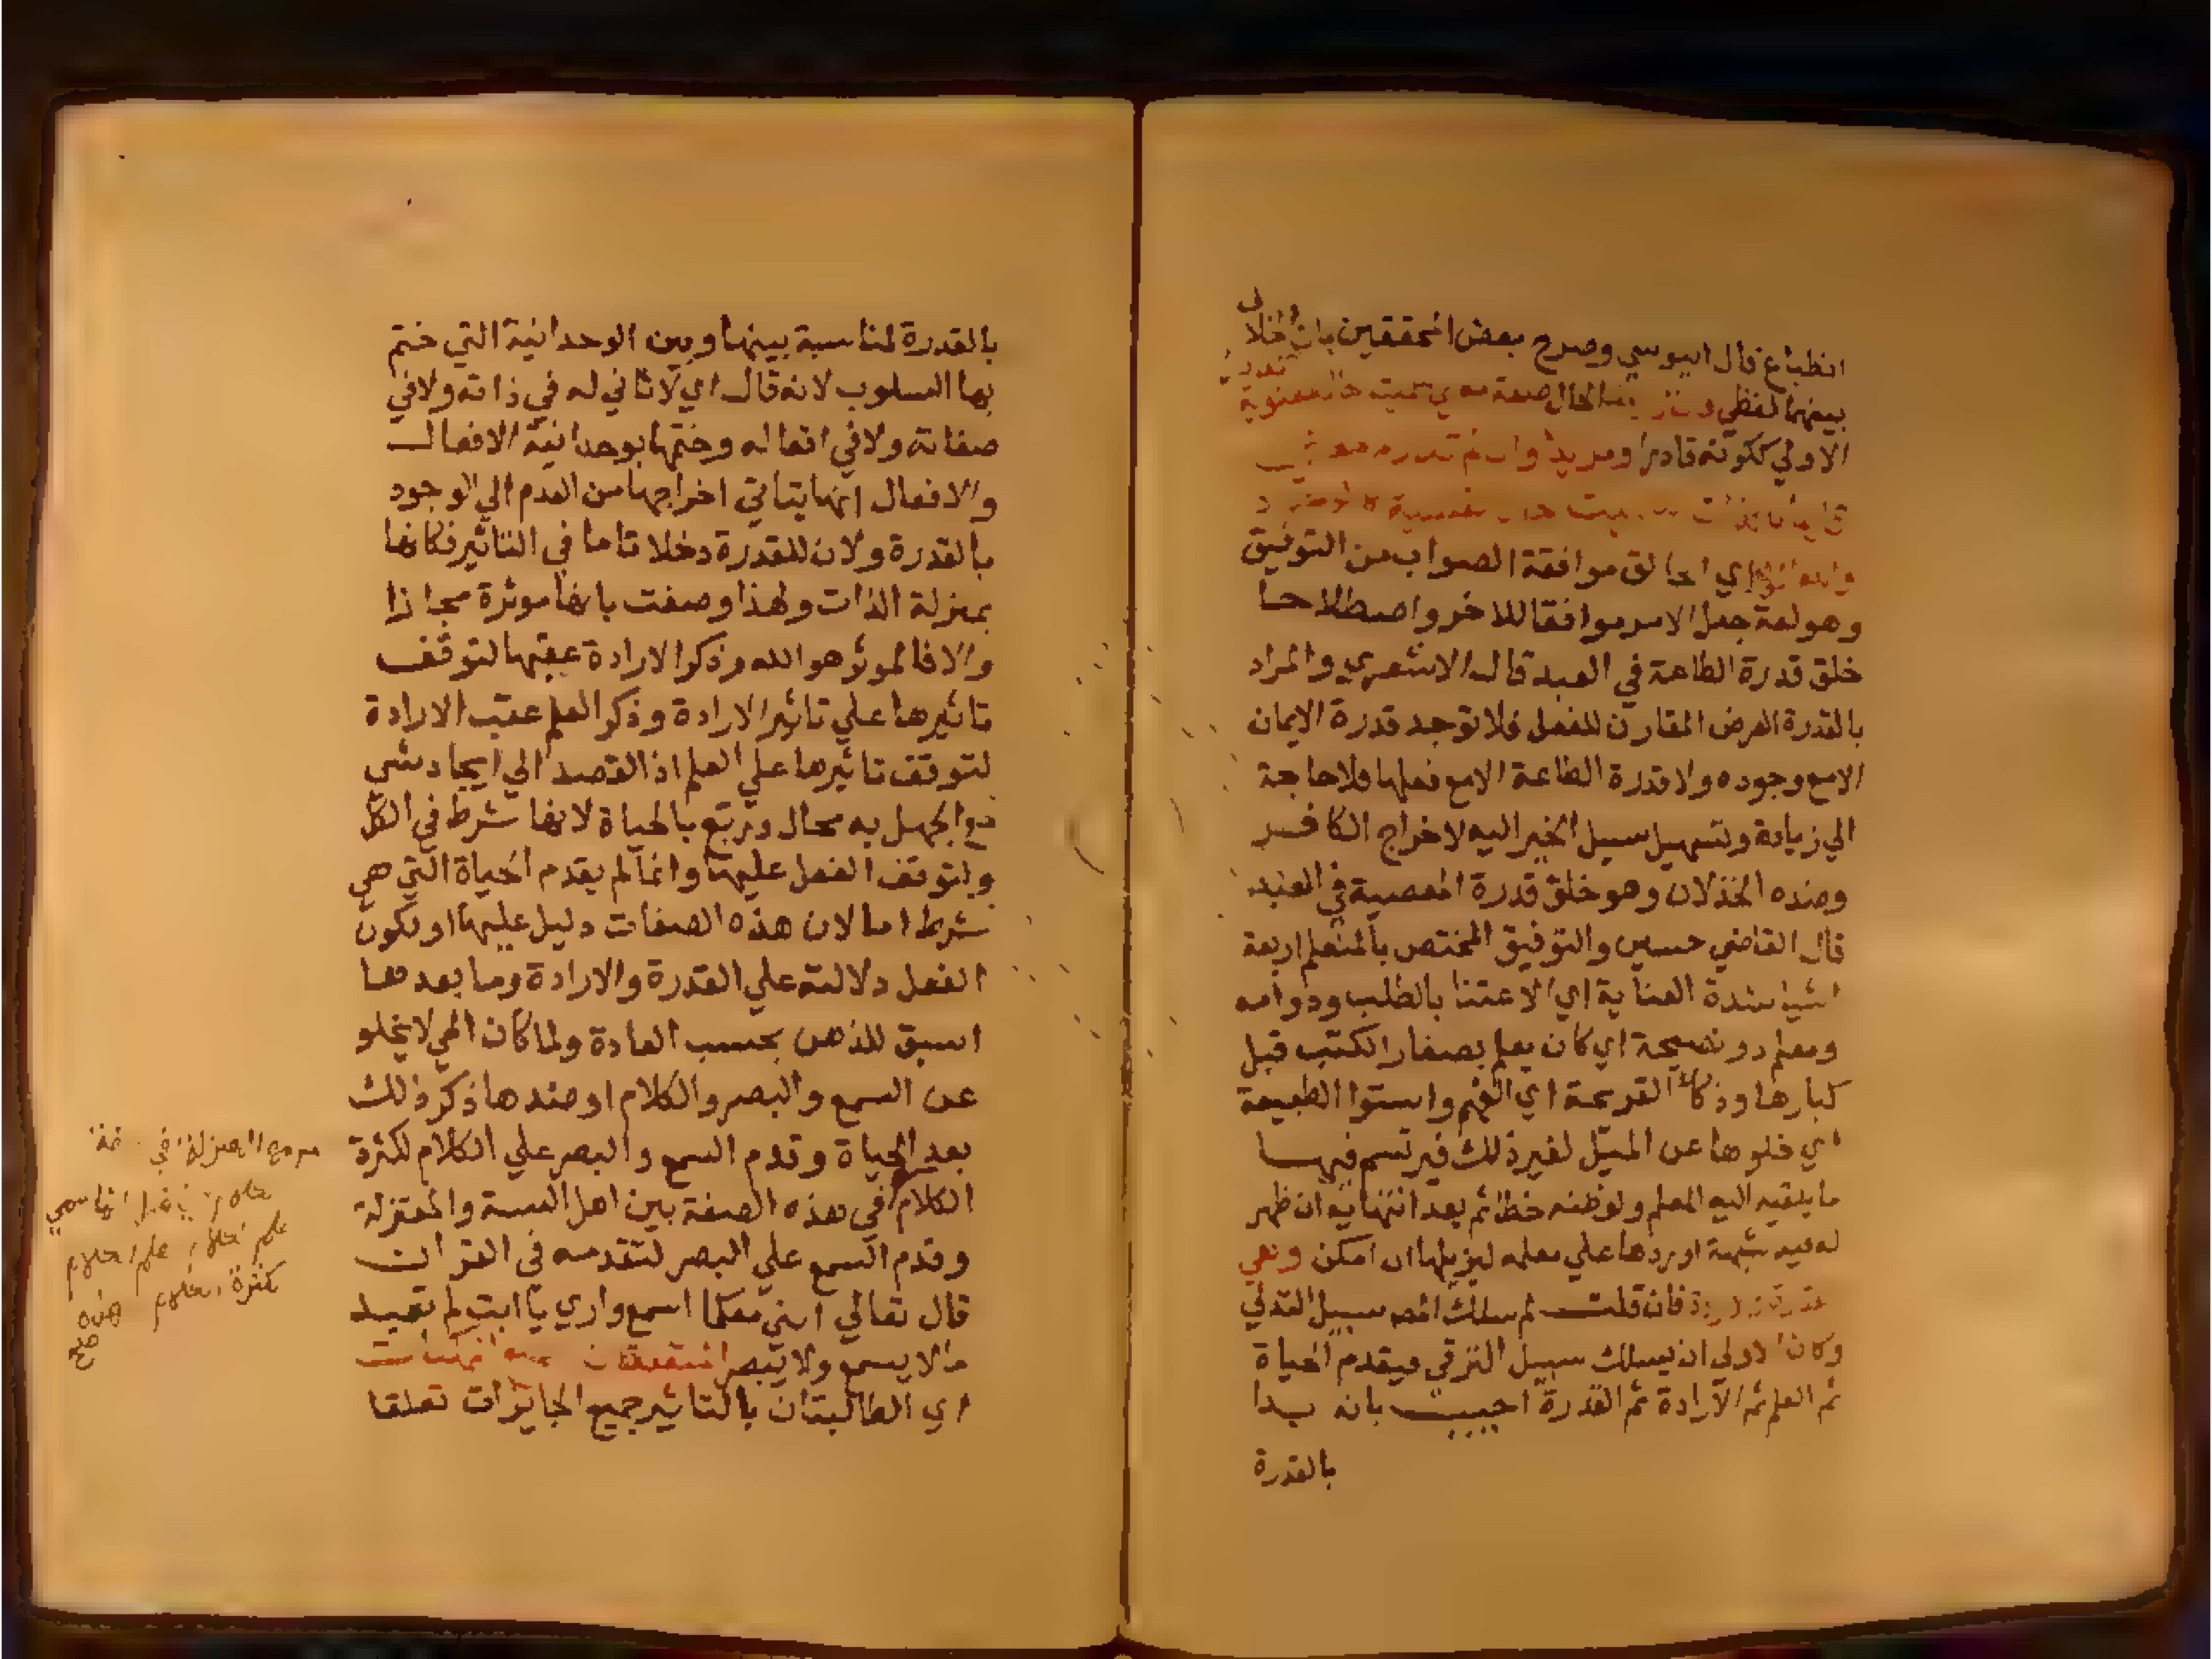 انطباع قال اليوسي وصرح بعض المحققين بان الخلاف
بينهما لفظي الحال صفة سميت حال معنوية
الاولي ككونه قادرا ومريدا وان لم
نفسية
اي الخالق موافقة الصواب من التوفيق
وهو لغة جعل الامر موافقا للاخر واصطلاحا
خلق قدرة الطاعة في العبد قال الاشعري والمراد
بالقدرة العرض المقارن للفعل فلا توجد قدرة الايمان
الا مع وجوده ولا قدرة الطاعة الا مع فعلها فلا حاجة
الي زيادة وتسهيل سبيل الخير اليه لاخراج الكافر
وضده الخذلان وهو خلق قدرة المعصية في العبد
قال القاضي حسين والتوفيق المختص بالمتعلم اربعة
اشيا شدة العناية اي الاعتنا بالطلب ودوامه
ومعلم ذو نصيحة اي كان يعلم بصغار الكتب قبل
كبارها وذكاء القريحة اي الفهم واستوا الطبيعة
اي خلوها عن الميل لغير ذلك فيرتسم فيها
ما يلقيه اليه المعلم ولو ظنه خطا ثم بعد انتهايه ان ظهر
له فيه شبهة اوردها علي معلمه ليزيلها ان امكن وهي
فان قلت لم سلك المص سبيل التدلي
وكان الاولي ان يسلك سبيل الترقي فيقدم الحياة
ثم العلم ثم الارادة ثم القدرة اجيب بانه بدا
بالقدرة
بالقدرة لمناسبة بينها وبين الوحدانية التي ختم
بها السلوب لانه قال اي لا ثاني له في ذاته ولا في
صفاته ولا في افعاله وختمها بوحدانية الافعال
والافعال انما يتاتي اخراجها من العدم الي الوجود
بالقدرة ولان للقدرة دخلا تاما في التاثير فكانها
بمنزلة الذات ولهذا وصفت بانها موثرة مجازا
والا فالموثر هو الله وذكر الارادة عقبها لتوقف
تاثيرها علي تاثير الارادة وذكر العلم عقب الارادة
لتوقف تاثيرها علي العلم اذ القصد الي ايجاد شي
مع الجهل به محال وربع بالحياة لانها شرط في الكل
ولتوقف الفعل عليها وانما لم يقدم الحياة التي هي
شرط اما لان هذه الصفات دليل عليها او لكون
الفعل دلالته علي القدرة والارادة وما بعدها
اسبق للذهن بحسب العادة ولما كان الحي لا يخلو
عن السمع والبصر والكلام او ضدها ذكر ذلك
بعد الحياة وقدم السمع والبصر علي الكلام لكثرة
الكلام في هذه الصفة بين اهل السنة والمعتزلة
وقدم السمع علي البصر لتقدمه في القران
قال تعالي انني معكما اسمع واري يا ابت لم تعبد
ما لا يسمع ولا يبصر المتعلقتان بجميع الممكنات
اي الطالبتان بالتاثير جميع الجايزات تعلقا
علم الكلام علم الكلام
لكثرة الكلام هذه
صح